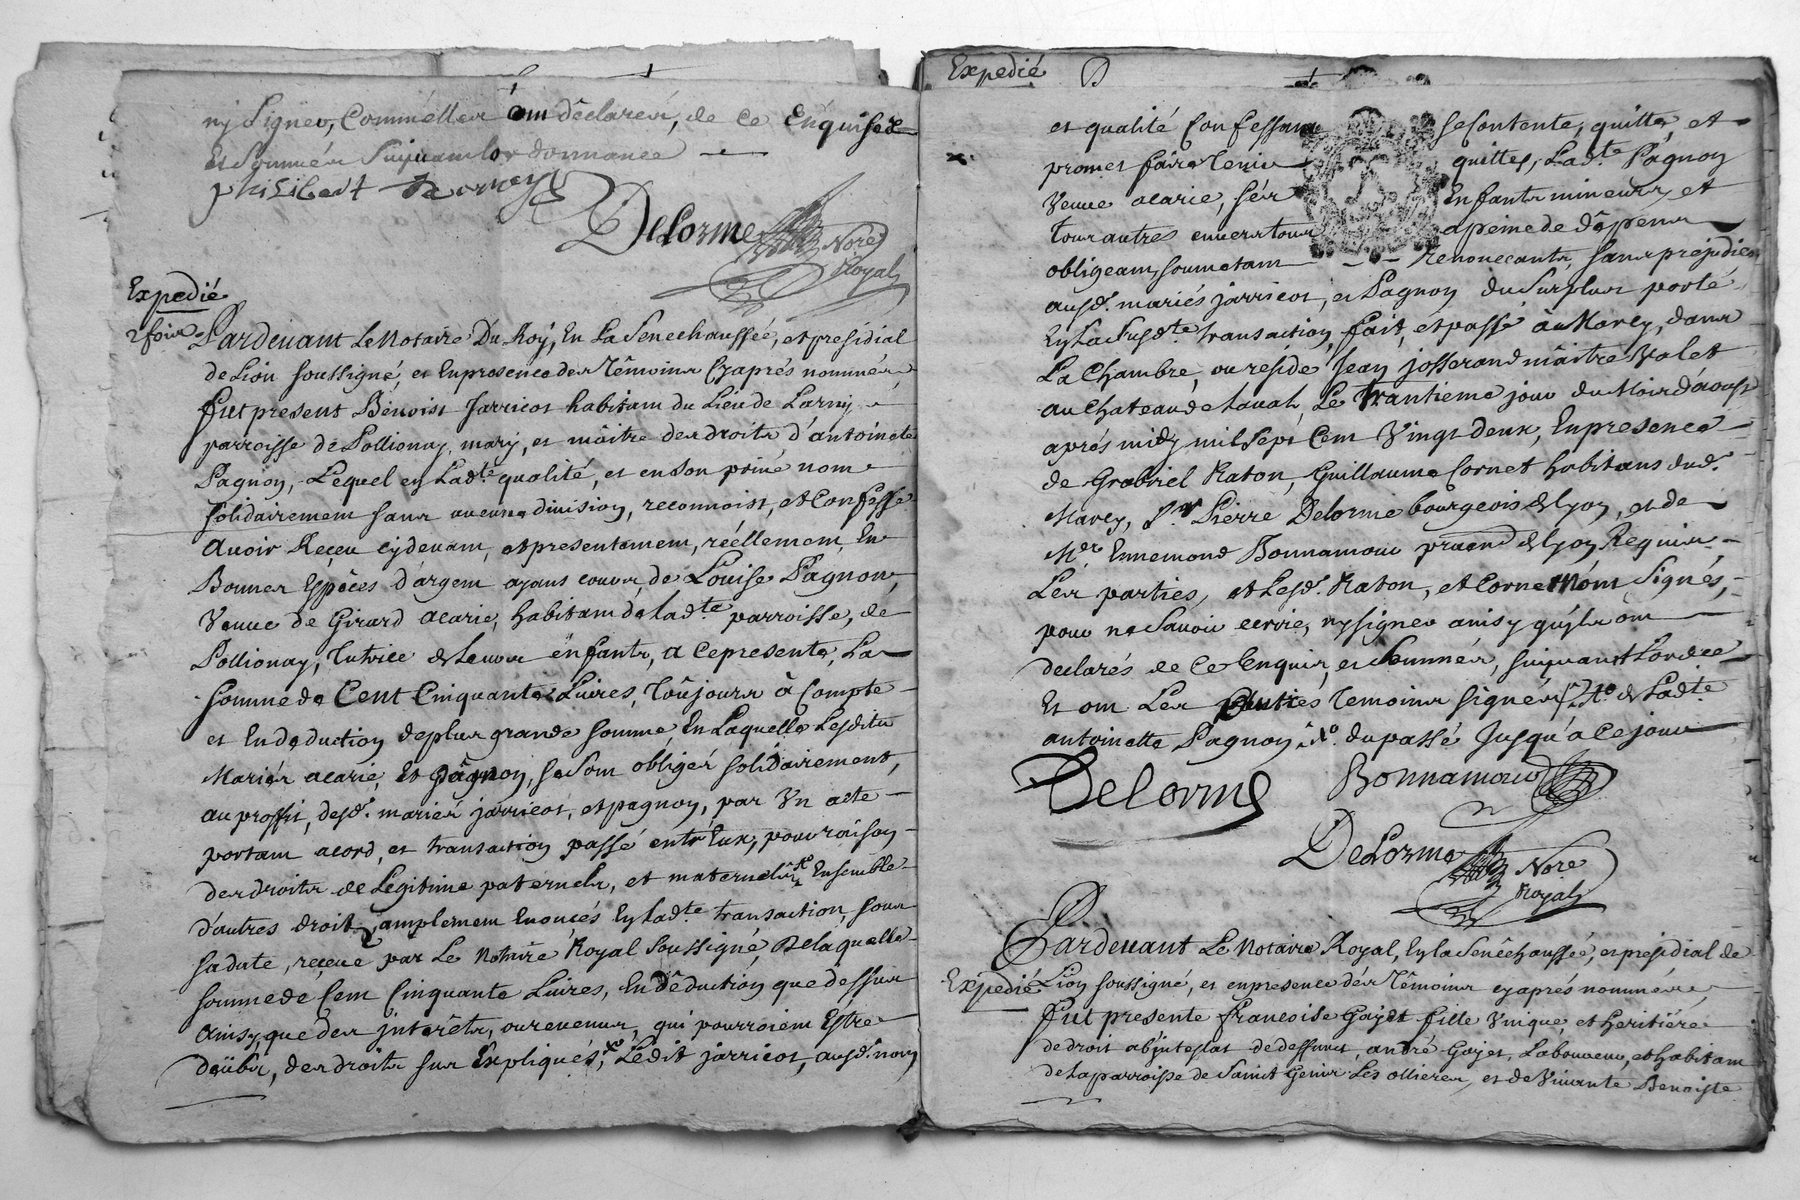 ny Signer, Comme ont déclarer, de ce Enquiser
et Sommér Suivant lordonnance
philibert
Delorme Nore
Royal
Expedié
2 fois
Pardevant Le Notaire Du Roy, En La Senechaussée, et presidial
de Lion soussigné, et En presence des Témoins Cyaprés nommés,
fut present Benoist Jarricot habitant du Lieu de Larny
parroisse de Pollionay, mary, et maître des droits d'antoinete
Pagnon, Lequel en Ladte qualité, et en son privé nom
solidairement sans aucune division, reconnoist, et Confesse
Avoir Reçeu cydevant, et presentement, réellement, En
Bonnes Espéces d'argent ayans cours de Louise Pagnon,
Veuve de Girard acarie, habitant de ladte parroisse, de
Pollionay, Tutrice de Leurs enfants, a Ce presente, La
somme de Cent Cinquante Livres, Toûjours à Compte
et En deduction de plus grande somme En Laquelle Lesdits
Mariés acarie, Et Pagnon, se sont obligés solidairement,
au proffit, desd. mariés jarricot, et pagnon, par Un acte
portant acord, et transaction passé entr'Eux, pour raison
des droits de Legitime paternels, et maternels Ensemble
d'autres droits, amplement Enoncés En ladte transaction, sous
sa date, reçeue par Le Notaire Royal soussigné, De laquelle
somme de Cent Cinquante Livres, En déduction que dessus
Ainsy que des jnterêts, ou revenus, qui pourroient Estre
deübs, des droits sus Expliqués, Ledit jarricot, ausd. nom
Expedié
et qualité Confessant se Contente, quitte, et
promet faire tenir quittes, Ladte Pagnon
Veuve acarie, ses Enfants mineurs, et
tous autres envers tous a peine de dépens
obligeant, soumetant renoncant, sans prejudice
ausd. mariés jarricot, et Pagnon du surplus porté
En La susdte transaction, fait, et passé à Marcy, dans
La Chambre, ou reside Jean josserand maître Valet
au Chateau de Laval, Le trantieme jour du Mois d'aoust
aprés midy mil sept Cent Vingt deux, En presence
de Grabriel Raton, Guillaume Cornet habitans dud.
Marcy, Sr Pierre Delorme bourgeois de lyon, et de
Mer Ennemond Bonnamour de lyon Requis
Les parties, et Lesd. Raton, et Cornet N'ont Signés,
pour ne Savoir ecrire, ny signer ainsy qu'ils ont
declarés de Ce Enquis, et Sommés, suivant Lordce
Et ont Les autres Temoins signés de Ladte
antoinette Pagnon du passé Jusqu'à Ce jour
Delorme Bonnamour
Delorme Nore
Royal
Expedié
Pardevant Le Notaire Royal, En la Senéchaussée, et presidial de
Lion soussigné, et en presence dés Témoins cyaprés nommés,
fut presente francoise Gayet fille Vnique, et heritiere
de droit abjntestat de deffunct, andré Gayet, Laboureur, et habitant
de la parroisse de Sainct Genis Les ollieres, et de Vivante Benoiste